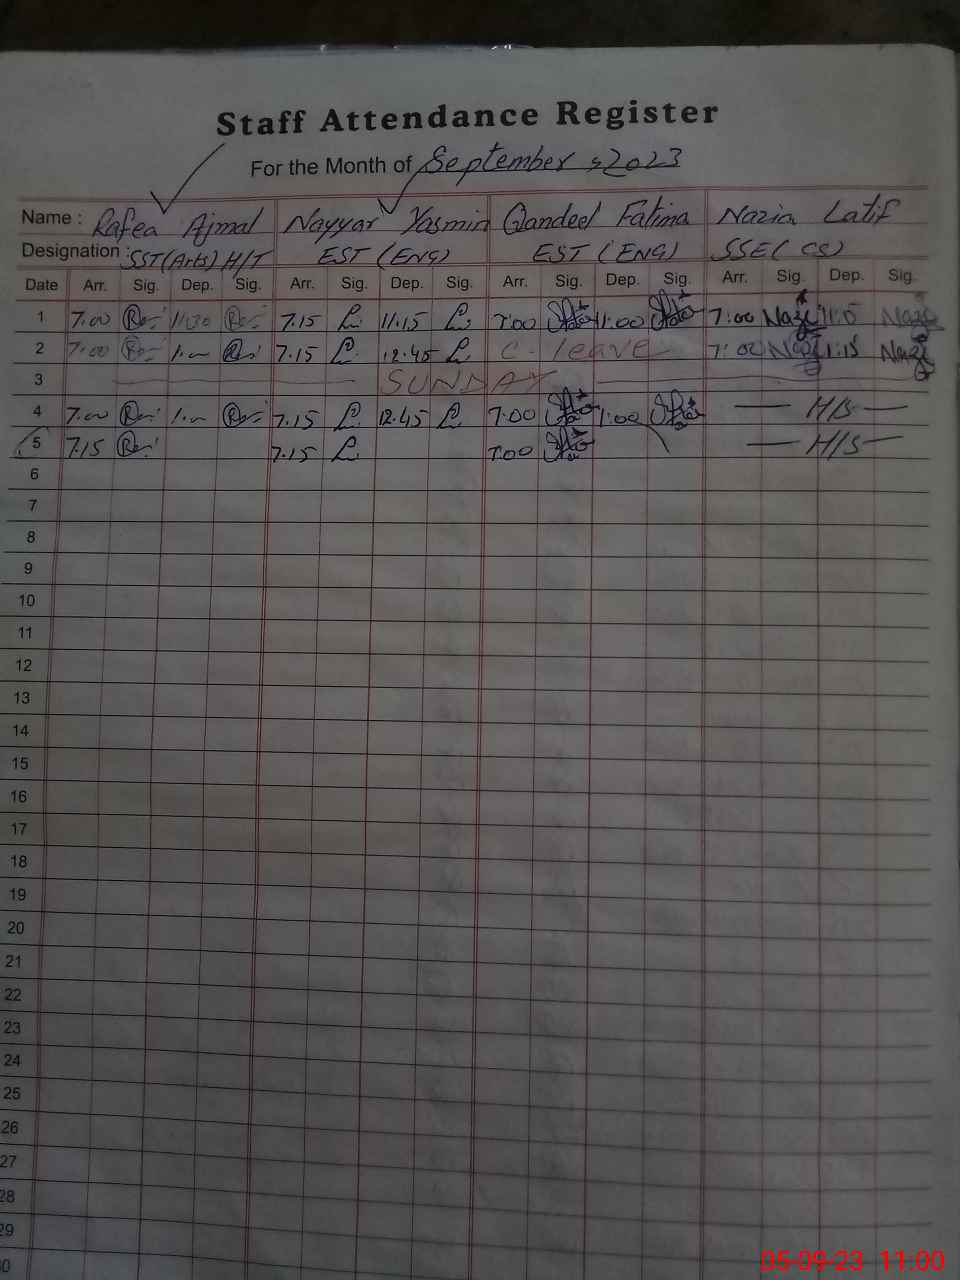 Staff Attendance Register
For the Month of September, 2023
Name : Rafea Ajmal Nayyar Yasmin Qandeel Fatima Nazia Latif
Designation : SST(Arts) H/T EST (ENG) EST (ENG) SSE( CS)
Date Arr. Sig. Dep. Sig. Arr. Sig. Dep. Sig. Arr. Sig. Dep. Sig. Arr. Sig. Dep. Sig.
1 7.00 11.30 7.15 11.15 7:00 11:00 7:00
2 7:00 7.15 12.45 C. leave 7:00 1:15
3 SUNDAY
4 7.00 7.15 12.45 7:00 1:00 H/S
5 7.15 7.15 7:00 H/S
6
7
8
9
10
11
12
13
14
15
16
17
18
19
20
21
22
23
24
25
26
27
28
29
05-09-23 11:00